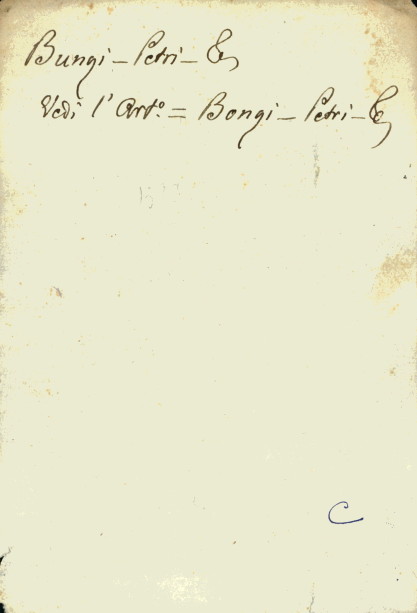 Bungi - Petri - &
Vedi l' Art.º = Bongi - Petri - &
C